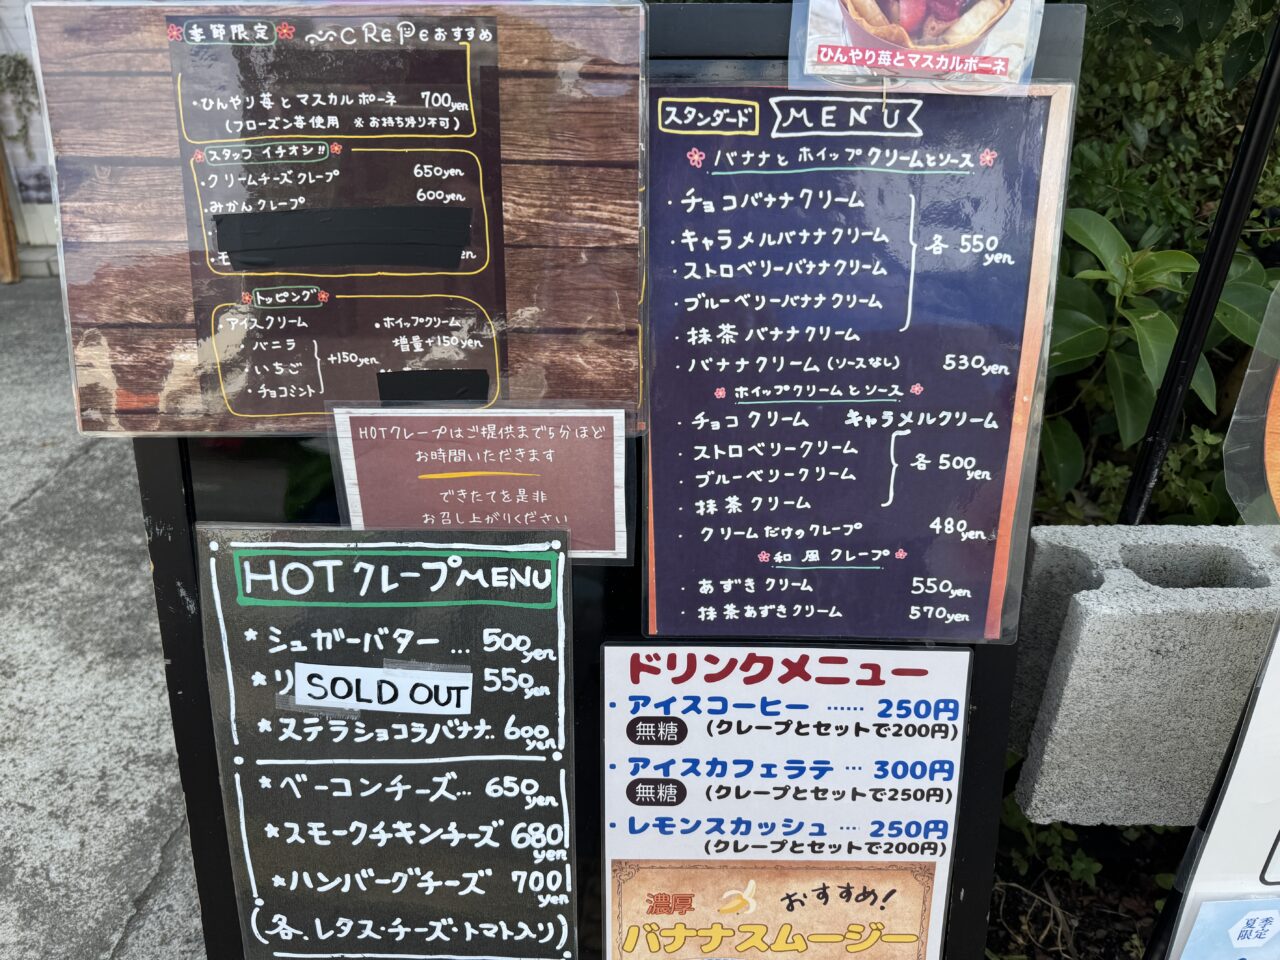 季節限定 CREPEおすすめ
・ひんやり苺とマスカルポーネ 700yen
(フローズン苺使用 ※お持ち帰り不可)
スタッフ イチオシ!!
・クリームチーズクレープ 650yen
・みかんクレープ 600yen
・モ
トッピング
・アイスクリーム
・バニラ
・いちご
・チョコミント
+150yen
・ホイップクリーム
増量+150yen
HOTクレープはご提供まで5分ほど
お時間いただきます
できたてを是非
お召し上がりください
HOTクレープMENU
★シュガーバター… 500yen
★リ SOLD OUT 550yen
★ヌテラショコラバナナ.. 600yen
★ベーコンチーズ… 650yen
★スモークチキンチーズ 680yen
★ハンバーグチーズ 700yen
(各、レタス・チーズ・トマト入り)
ひんやり苺とマスカルポーネ
スタンダード MENU
バナナとホイップクリームとソース
・チョコバナナクリーム
・キャラメルバナナクリーム
・ストロベリーバナナクリーム
・ブルーベリーバナナクリーム
・抹茶バナナクリーム
各550yen
・バナナクリーム(ソースなし) 530yen
ホイップクリームとソース
・チョコクリーム キャラメルクリーム
・ストロベリークリーム
・ブルーベリークリーム
・抹茶クリーム
各500yen
・クリームだけのクレープ 480yen
和風クレープ
・あずきクリーム 550yen
・抹茶あずきクリーム 570yen
ドリンクメニュー
・アイスコーヒー …… 250円
無糖 (クレープとセットで200円)
・アイスカフェラテ … 300円
無糖 (クレープとセットで250円)
・レモンスカッシュ … 250円
(クレープとセットで200円)
濃厚 おすすめ!
バナナスムージー
夏季
限定